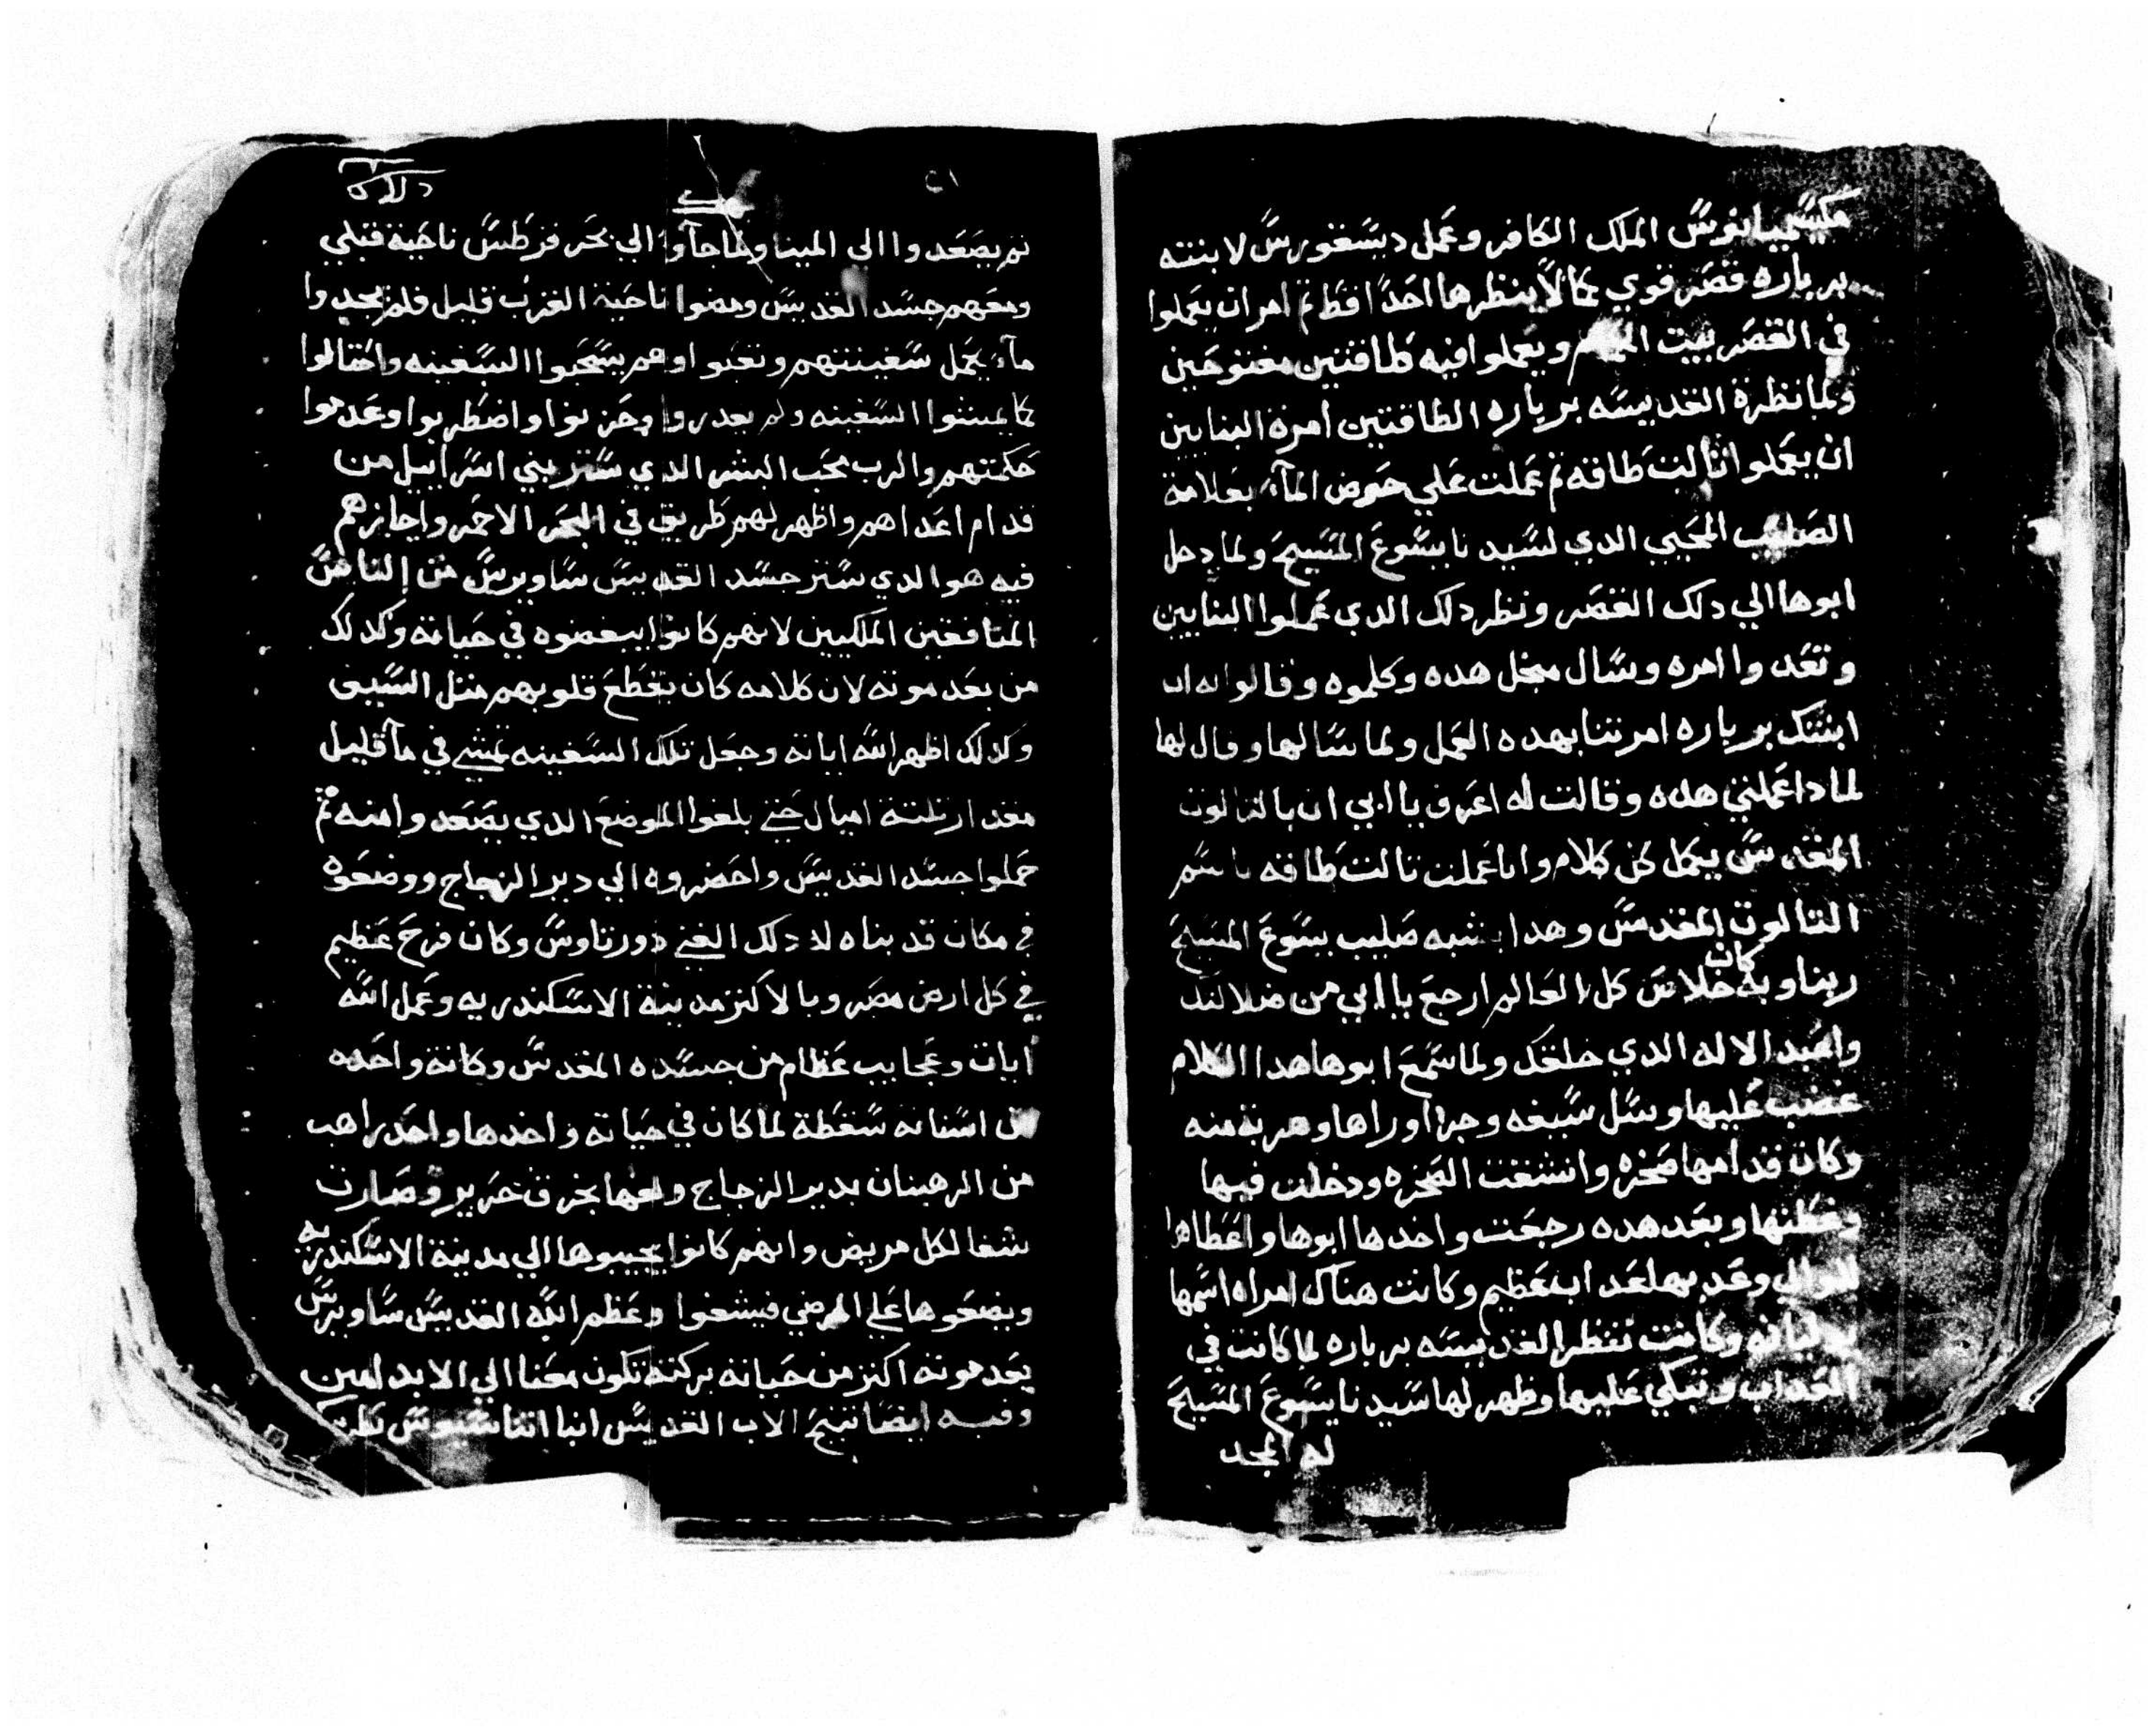 مكسيميانوس الملك الكافر وعمل ديسقورس لابنته
بربارة قصر قوي كما لا ينظرها احدًا قط ثم امر ان يعملوا
في القصر بيت الحمام ويعملوا فيه طاقتين مفتوحين
ولما نظرة القديسه برباره الطاقتين امرة البنايين
ان يعملوا ثالت طاقه ثم عملت علي حوض المآء بعلامة
الصليب المحيي الدي لسيدنا يسوع المسيح ولما دخل
ابوها الي دلك القصر ونظر دلك الدي عملوا البنايين
وتعدوا امره وسال مجل هده وكلموه وقالوا له ان
ابنتك برباره امرتنا بهده العمل ولما سالها وقال لها
لمادا عملتي هده وقالت له اعرف يا ابي ان بالتالوت
المقدس يكمل كل كلام وانا عملت تالت طاقه باسم
التالوت المقدس وهدا يشبه صليب يسوع المسيح
ربنا وبه كان خلاص كل العالم ارجع يا ابي من ضلالتك
واعبد الاله الدي خلقك ولما سمع ابوها هدا الكلام
غضب عليها وسل سيفه وجرا وراها وهربة منه
وكان قدامها صخره وانشقت الصخره ودخلت فيها
وغطتها وبعد هده رجعت واخدها ابوها واعطاها
للوالي وعدبها بعداب عظيم وكانت هناك امراه اسمها
يوليانه وكانت تنظر القديسه برباره لما كانت في
العداب وتبكي عليها وظهر لها سيدنا يسوع المسيح
له المجد
٢١
ثم يصعدوا الي المينا ولما جآوا الي بحر قرطس ناحية قبلي
ومعهم جسد القديس ومضوا ناحية الغرب قليل فلم يجدوا
مآء يحمل سفينتهم وتعبوا وهم يسحبوا السفينه واحتالوا
كما يمشوا السفينه ولم يقدروا وحزنوا واضطربوا وعدموا
حكمتهم والرب محب البشر الدي ستر بني اسراييل من
قدام اعداهم واظهر لهم طريق في البحر الاحمر واجازهم
فيه هو الدي ستر جسد القديس ساويرس من الناس
المنافقين الملكيين لانهم كانوا يبغضوه في حياته وكدلك
من بعد موته لان كلامه كان يقطع قلوبهم متل السيف
وكدلك اظهر الله اياته وجعل تلك السفينه تمشي في مآ قليل
مقدار تلتة اميال حتي بلغوا الموضع الدي يصعدوا منه ثم
حملوا جسد القديس واحضروه الي دير الزجاج ووضعوه
في مكان قد بناه له دلك الغني دورتاوس وكان فرح عظيم
في كل ارض مصر وبالاكتر مدينة الاسكندريه وعمل الله
ايات وعجايب عظام من جسده المقدس وكانة واحده
من اسنانه سقطة لما كان في حياته واخدها واحد راهب
من الرهبان بدير الزجاج ولفها بخرق حرير وصارت
شفا لكل مريض وانهم كانوا يجيبوها الي مدينة الاسكندريه
ويضعوها علي المرضي فيشفوا وعظم الله القديس ساويرس
بعد موته اكتر من حياته بركته تكون معنا الي الابد امين
وفيه ايضا تنيح الاب القديس انبا اتناسيوس بطرك